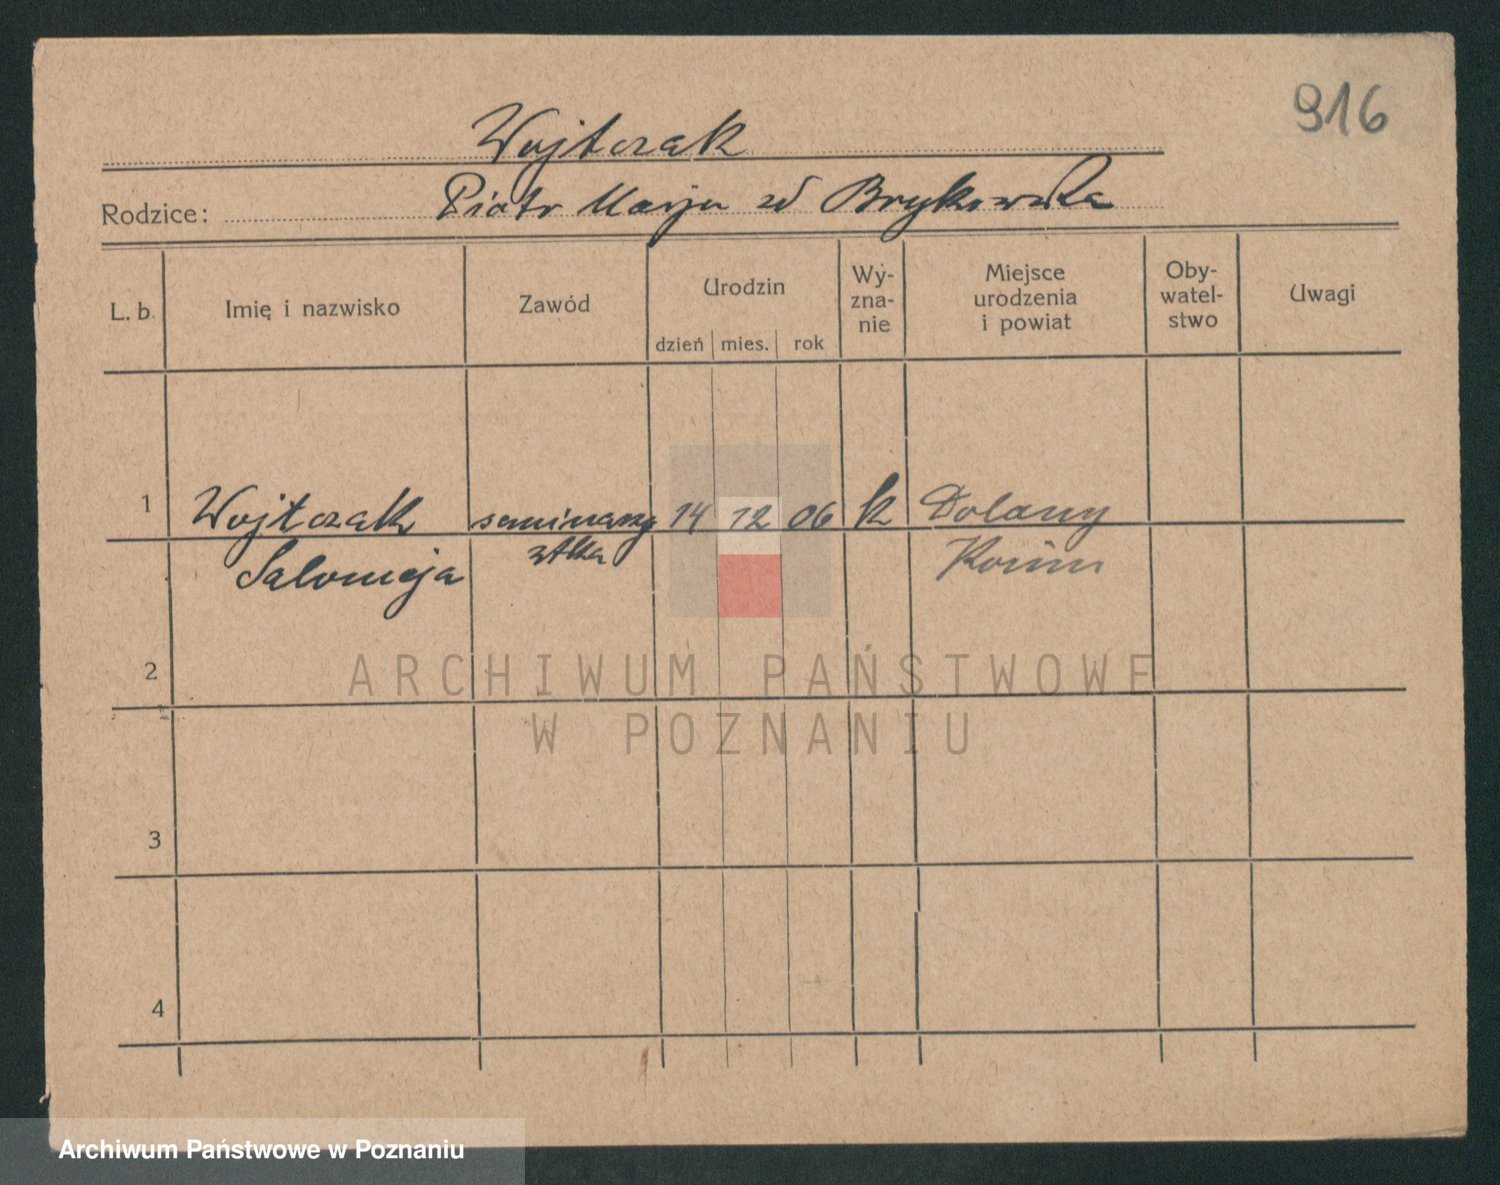 916
Wojtczak
Rodzice: Piotr Marja zd Brykowska
L. b. Imię i nazwisko Zawód Urodzin dzień mies. rok Wy-zna-nie Miejsce urodzenia i powiat Oby-watel-stwo Uwagi
1 Wojtczak seminarzy 14 12 06 k Dolany
Salomeja stka Konin
2
ARCHIWUM PAŃSTWOWE
W POZNANIU
3
4
Archiwum Państwowe w Poznaniu